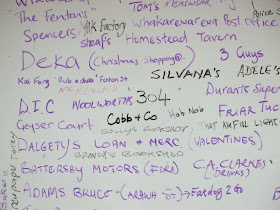 "The Fentons" TOM'S MENSWEAR Police S
Spencers Milk Factory Whakarewarewa Post Office
Sleaf's Homestead Tavern
DEKA (Christmas Shopping) 3 Guys
Kai Fong 'Rub a dubs' Fenton St SILVANA'S ADELE'S
McKENZIES
D.I.C WOOLWORTHS 304 Durants Super
Geyser Court Cobb & Co Hob Nob FRIAR TUC
THAT AWFUL LIGHT
DALGETYS LOAN & MERC (VALENTINES)
BATTERSBY MOTORS (FORD) C.A. CLARKES (DEKAS)
ADAMS BRUCE (ARAWA St) → Fatdog 2 Go